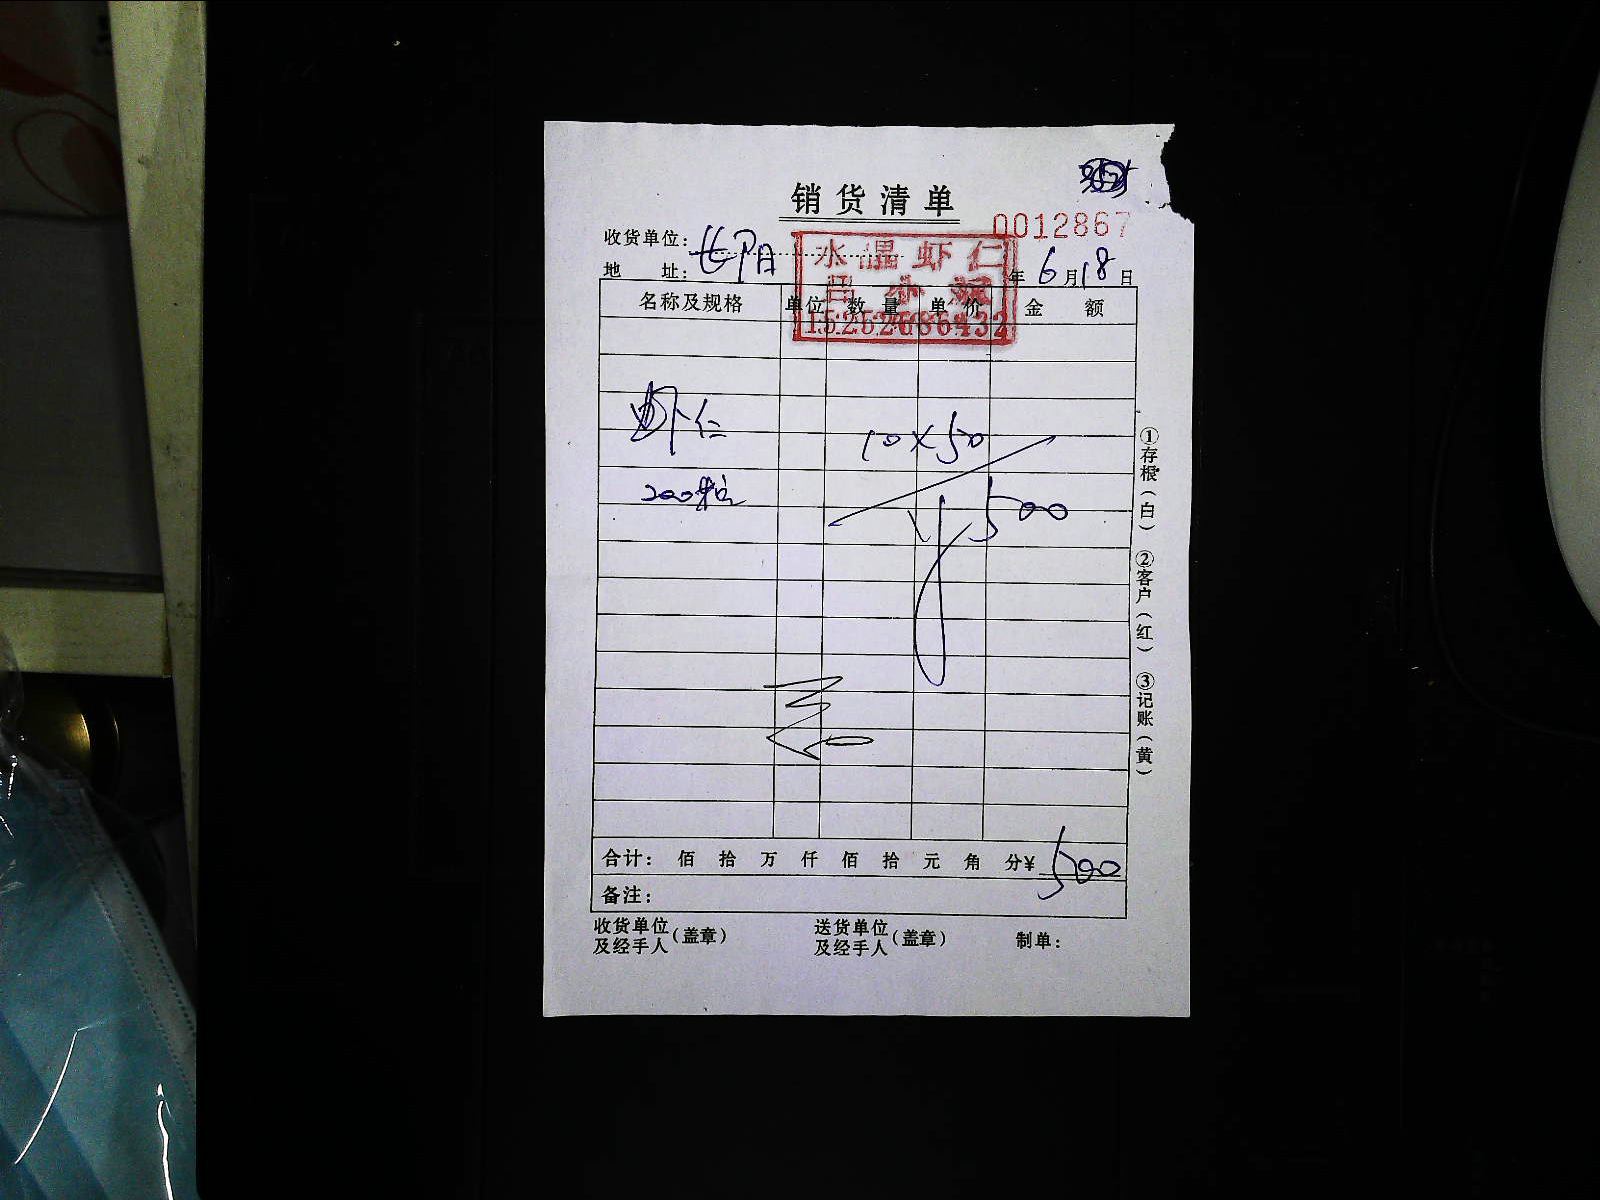 销货清单
0012867
收货单位：
水晶虾仁
地 址：
年 6 月 18 日
名称及规格 单位 数量 单价 金 额
虾仁 10×50
200粒 500
合计： 佰 拾 万 仟 佰 拾 元 角 分¥ 500
备注：
收货单位及经手人（盖章） 送货单位及经手人（盖章） 制单：
①存根（白） ②客户（红） ③记账（黄）